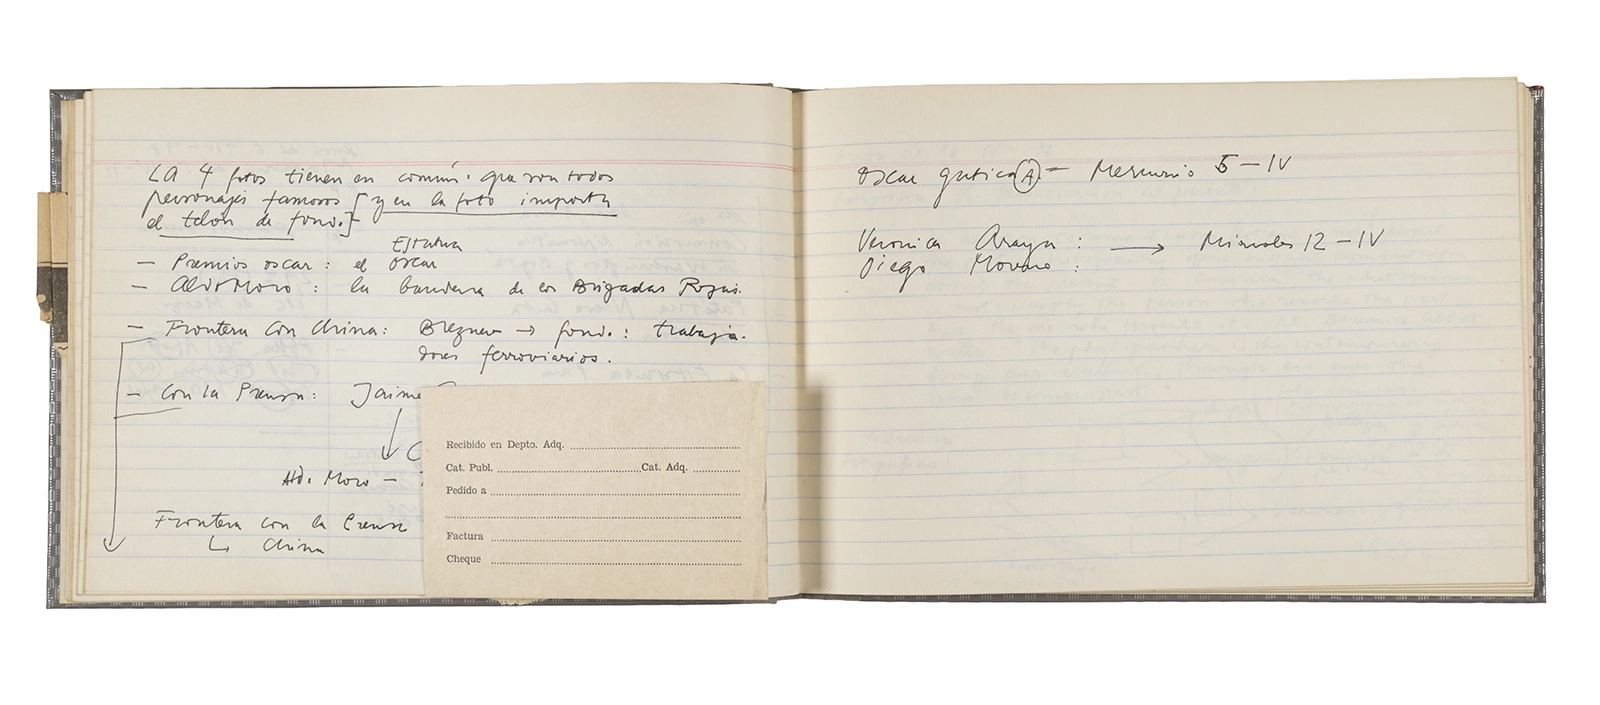 LA 4 fotos tienen en común: que son todos
personajes famosos [y en la foto importa
el telón de fondo.]
Estatua
— Premios oscar: el oscar
— Aldo Moro: la bandera de las Brigadas Rojas.
— Frontera con China: Breznev → fondo: trabaja-
dores ferroviarios.
— Con la Prensa: Jaime
Aldo Moro —
Frontera con la Prensa
↳ China
Recibido en Depto. Adq.
Cat. Publ. Cat. Adq.
Pedido a
Factura
Cheque
Oscar (A) — Mercurio 5 – IV
Veronica Araya: → Miercoles 12 – IV
Diego :